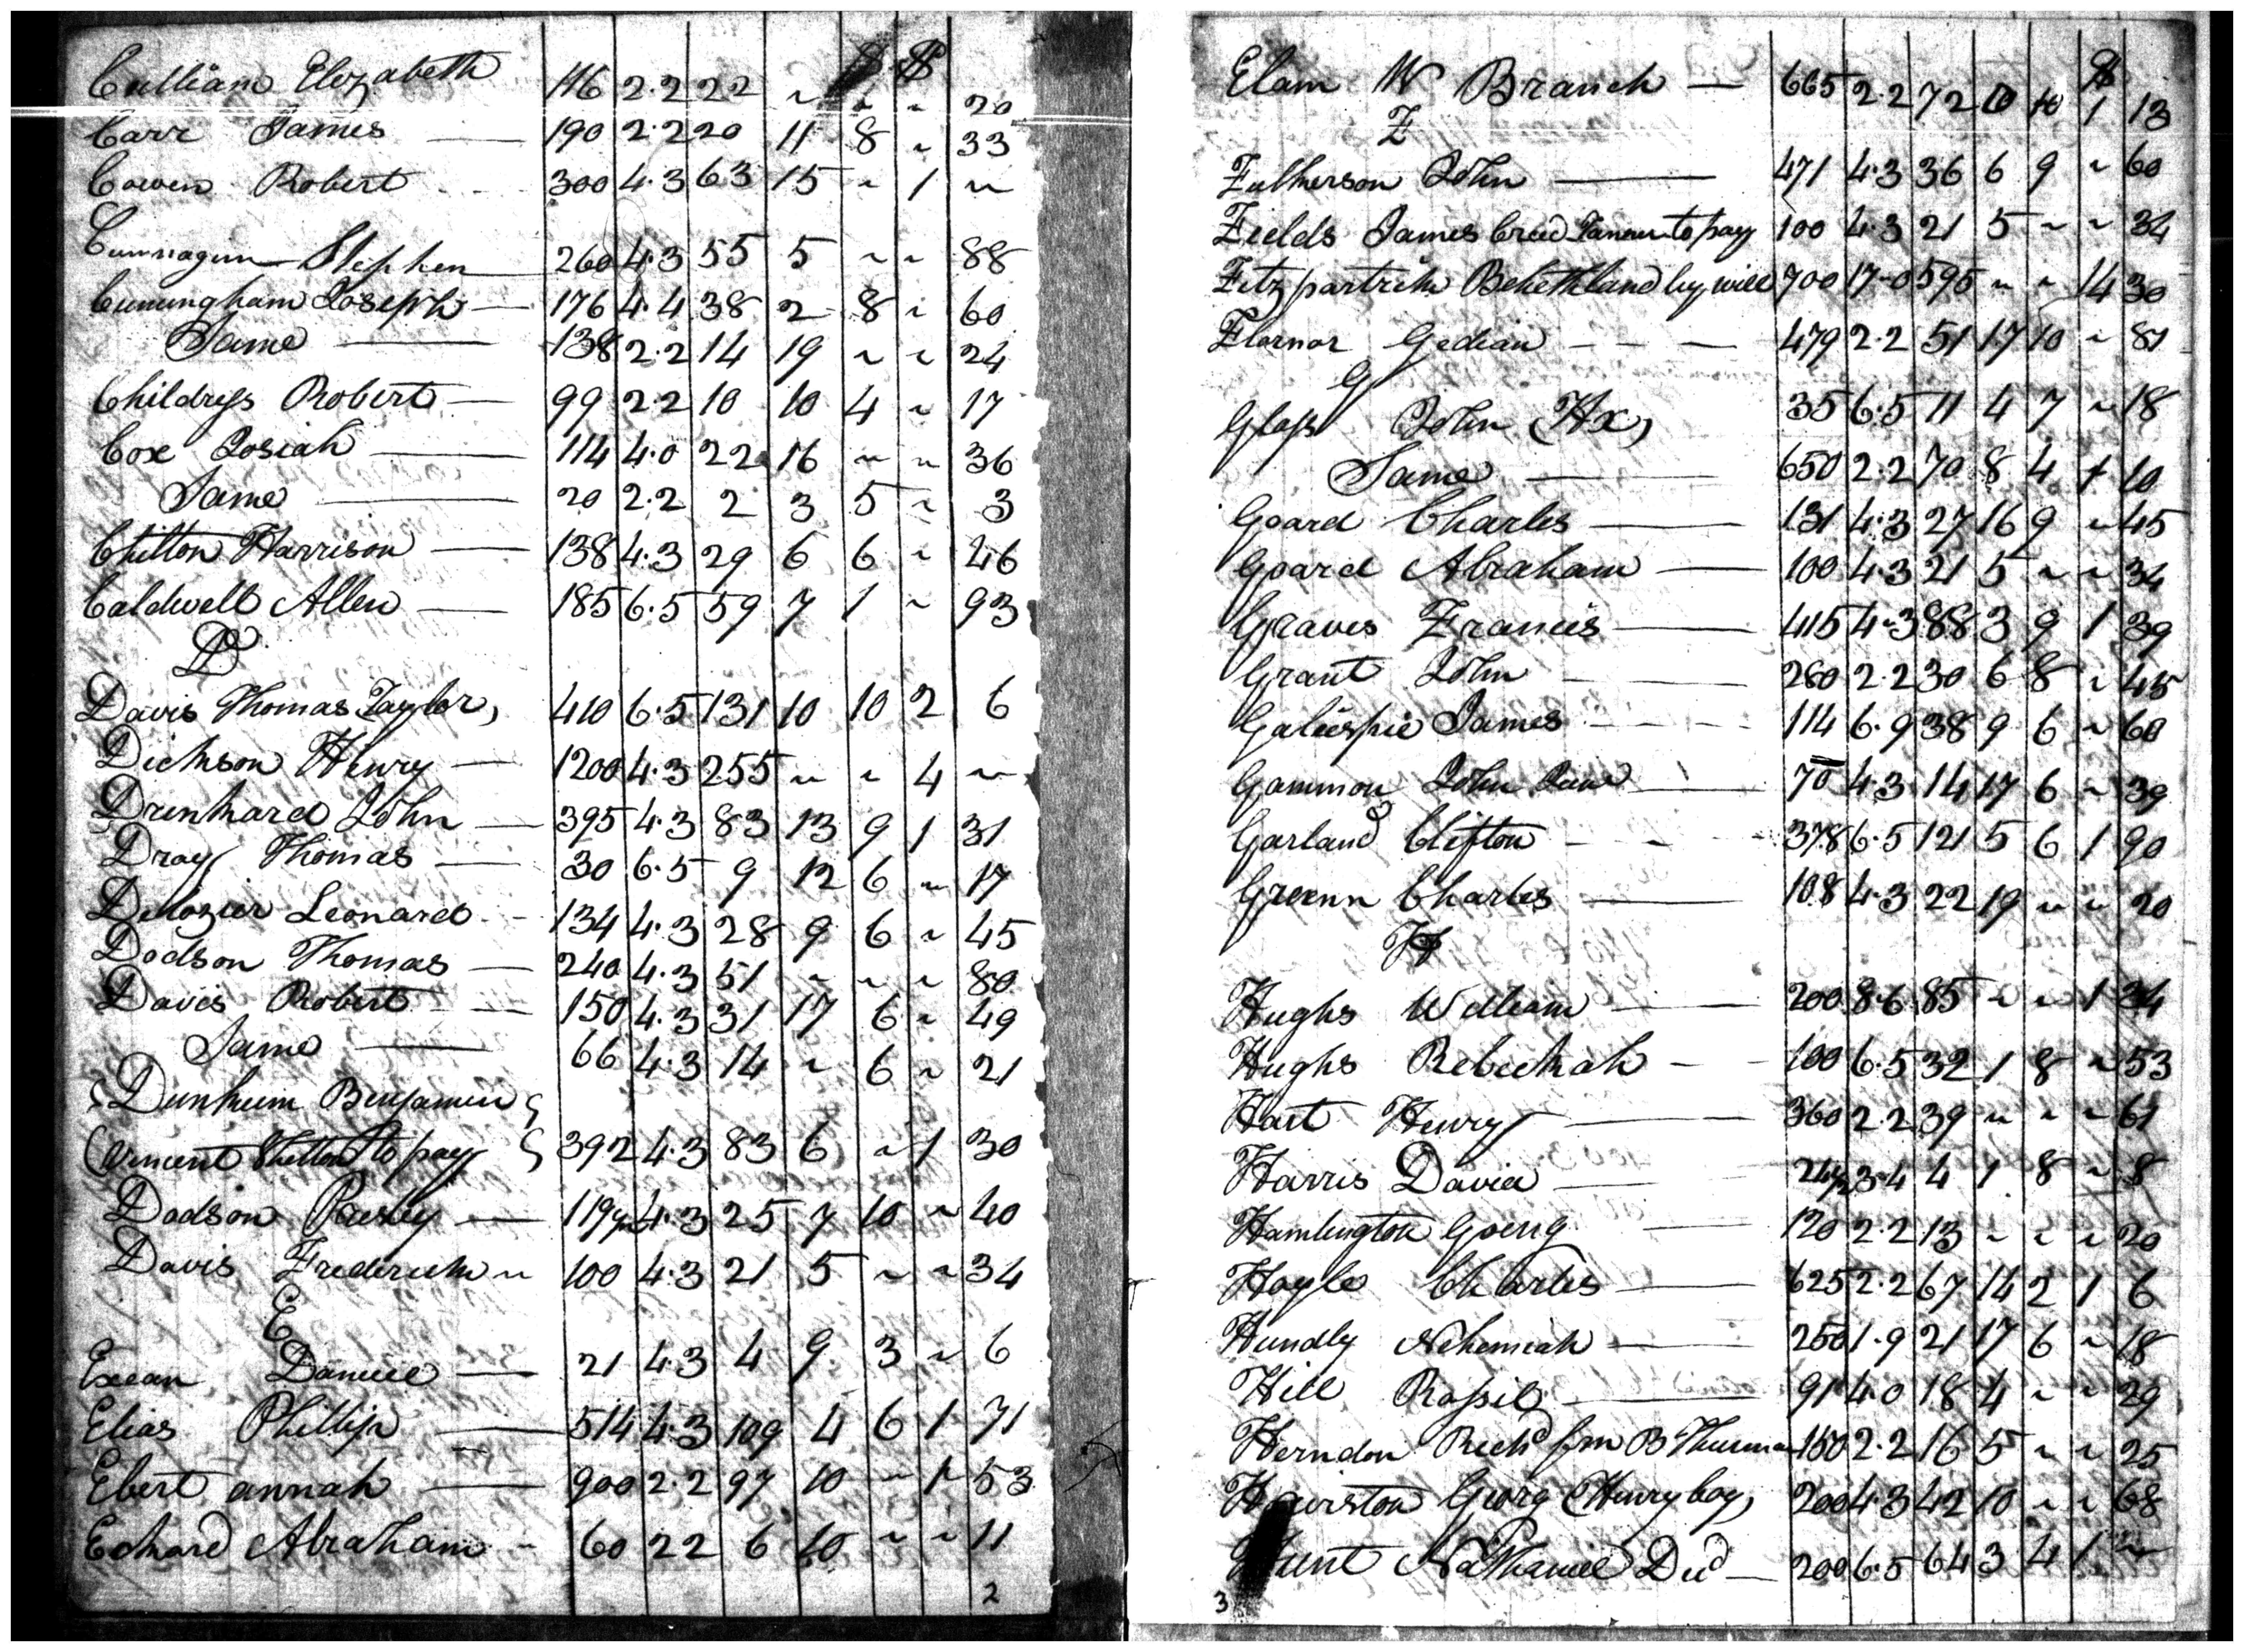 $ $
Culliam Elezabeth 116 2.2 22 ~ ~ ~ 20
Carr James 190 2.2 20 11 8 ~ 33
Cowen Robert 300 4.3 63 15 ~ 1 ~
Cunnagim Stephen 260 4.3 55 5 ~ ~ 88
Cuningham Joseph 176 4.4 38 2 8 ~ 60
Same 138 2.2 14 19 ~ ~ 24
Childress Robert 99 2.2 10 10 4 ~ 17
Cox Josiah 114 4.0 22 16 ~ ~ 36
Same 20 2.2 2 3 5 ~ 3
Chitton Harrison 138 4.3 29 6 6 ~ 46
Caldwell Allen 185 6.5 59 7 1 ~ 93
D
Davis Thomas Taylor, 410 6.5 131 10 10 2 6
Dickson Henry 1200 4.3 255 ~ ~ 4 ~
Drinkard John 395 4.3 83 13 9 1 31
Dray Thomas 30 6.5 9 12 6 ~ 17
Delozier Leonard 134 4.3 28 9 6 ~ 45
Dodson Thomas 240 4.3 51 ~ ~ ~ 80
Davis Robert 150 4.3 31 17 6 ~ 49
Same 66 4.3 14 ~ 6 ~ 21
Dunkum Benjamin
Vincent Shelton to pay 392 4.3 83 6 ~ 1 30
Dodson 119½ 4.3 25 7 10 ~ 40
Davis Frederick 100 4.3 21 5 ~ ~ 34
E
Daniel 21 4.3 4 9 3 ~ 6
Elias Phillip 514 4.3 109 4 6 1 71
Ebert annah 900 2.2 97 10 ~ 1 53
Echard Abraham 60 2 2 6 10 ~ ~ 11
2
$
Elam W Branch 665 2.2 72 10 10 1 13
F
Fulkerson John 471 4.3 36 6 9 ~ 60
Fields James Creed Tanner to pay 100 4.3 21 5 ~ ~ 34
Fitzpartrick Behethland by will 700 17-0 595 ~ ~ 14 30
Flornor Gedian 479 2.2 51 17 10 ~ 81
G
Glass John (Hx) 35 6.5 11 4 7 ~ 18
Same 650 2.2 70 8 4 1 10
Goard Charles 131 4.3 27 16 9 ~ 45
Goard Abraham 100 4.3 21 5 ~ ~ 34
Graves Francis 415 4.3 88 3 9 1 39
Grant John 280 2.2 30 6 8 ~ 45
Galiespie James 114 6.9 38 9 6 ~ 60
Gammon John 70 4.3 14 17 6 ~ 39
Garland Clifton 378 6.5 121 5 6 1 90
Greenn Charles 108 4.3 22 19 ~ ~ 20
H
Hughs William 200 8.6 85 ~ ~ 1 34
Hughs Rebeckah 100 6.5 32 1 8 ~ 53
Hart Henry 360 2.2 39 ~ ~ ~ 61
Harris David 24½ 3.4 4 1 8 ~ 8
Hamlington Goerg 120 2.2 13 ~ ~ ~ 20
Hoyle Charles 625 2.2 67 14 2 1 6
Hundly Nehemiah 250 1.9 21 17 6 ~ 18
Hill Rossil 91 4.0 18 4 ~ ~ 29
Herndon Richd frm B Thurman 150 2.2 16 5 ~ ~ 25
Hairston Georg (Henry boy) 200 4.3 42 10 ~ ~ 68
Hunt Nathaniel Decd 200 6.5 64 3 4 1 ~
3